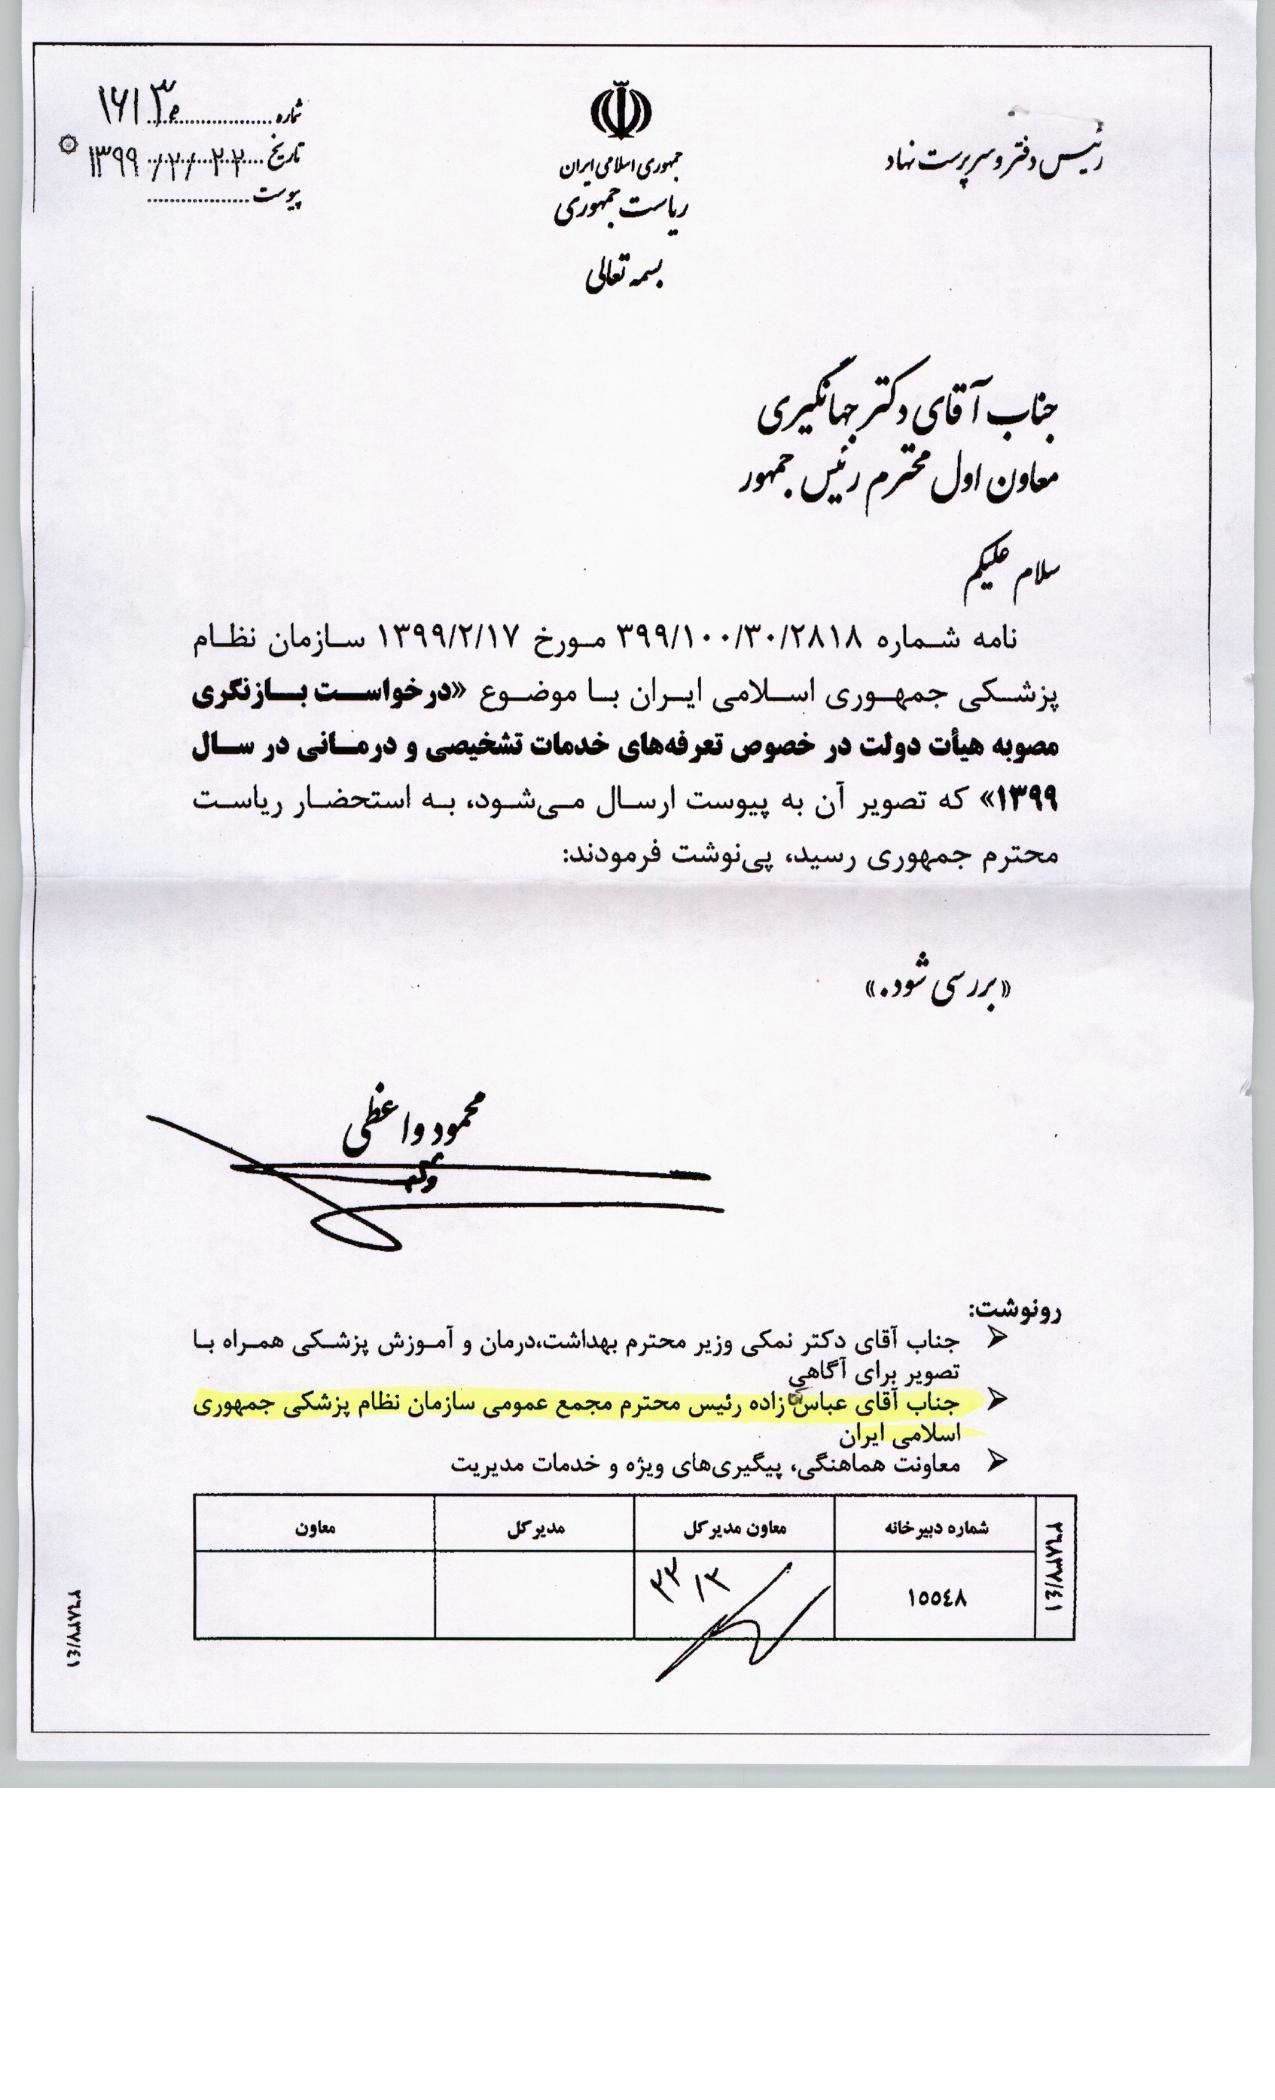 رئیس دفتر و سرپرست نهاد
جمهوری اسلامی ایران
ریاست جمهوری
بسمه تعالی
شماره
تاریخ ۱۳۹۹/۲/۲۲
پیوست
جناب آقای دکتر جهانگیری
معاون اول محترم رئیس جمهور
سلام علیکم
نامه شماره ۳۹۹/۱۰۰/۳۰/۲۸۱۸ مورخ ۱۳۹۹/۲/۱۷ سازمان نظام
پزشکی جمهوری اسلامی ایران با موضوع «درخواست بازنگری
مصوبه هیأت دولت در خصوص تعرفه‌های خدمات تشخیصی و درمانی در سال
۱۳۹۹» که تصویر آن به پیوست ارسال می‌شود، به استحضار ریاست
محترم جمهوری رسید، پی‌نوشت فرمودند:
«بررسی شود.»
محمود واعظی
رونوشت:
جناب آقای دکتر نمکی وزیر محترم بهداشت،درمان و آموزش پزشکی همراه با
تصویر برای آگاهی
جناب آقای عباس زاده رئیس محترم مجمع عمومی سازمان نظام پزشکی جمهوری
اسلامی ایران
معاونت هماهنگی، پیگیری‌های ویژه و خدمات مدیریت
شماره دبیرخانه معاون مدیرکل مدیرکل معاون
۱۵۵۴۸